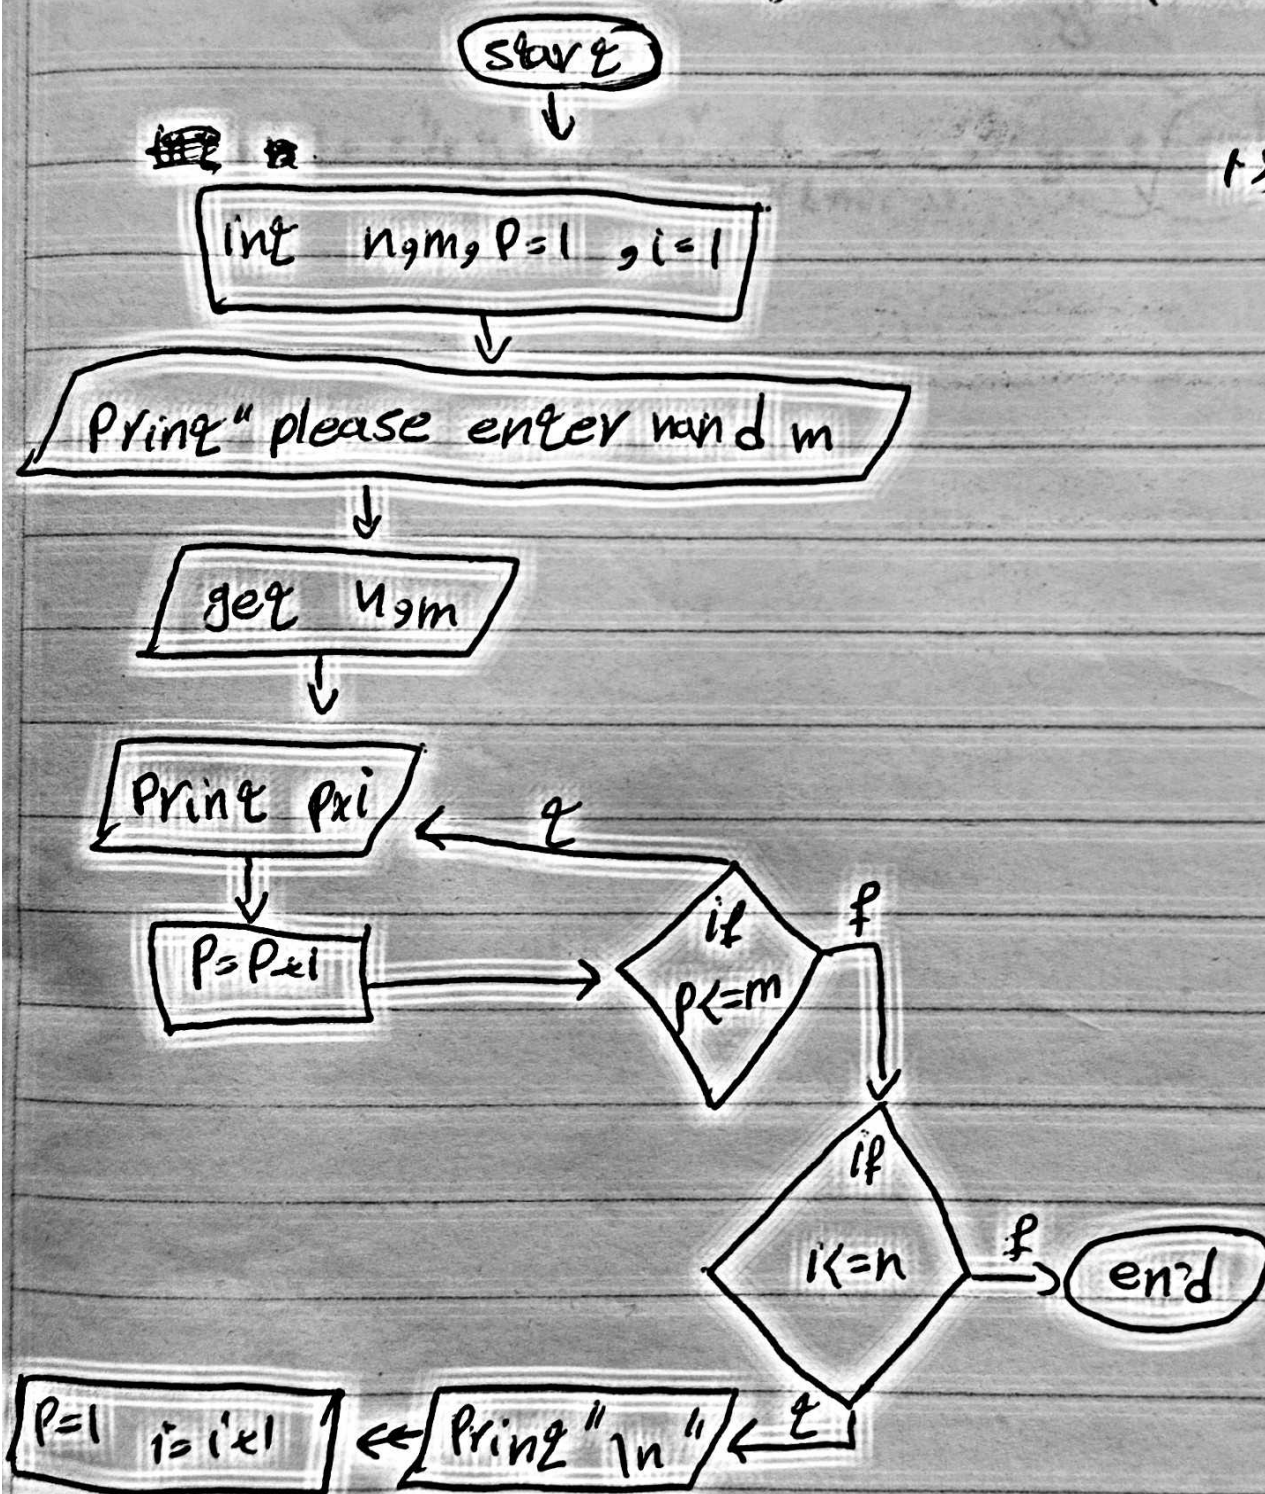 start
int n,m,P=1 ,i=1
Print" please enter n and m
get n,m
Print pxi
t
P=P+1
if
p<=m
f
if
i<=n
f
end
t
Print "\n"
P=1 i=i+1